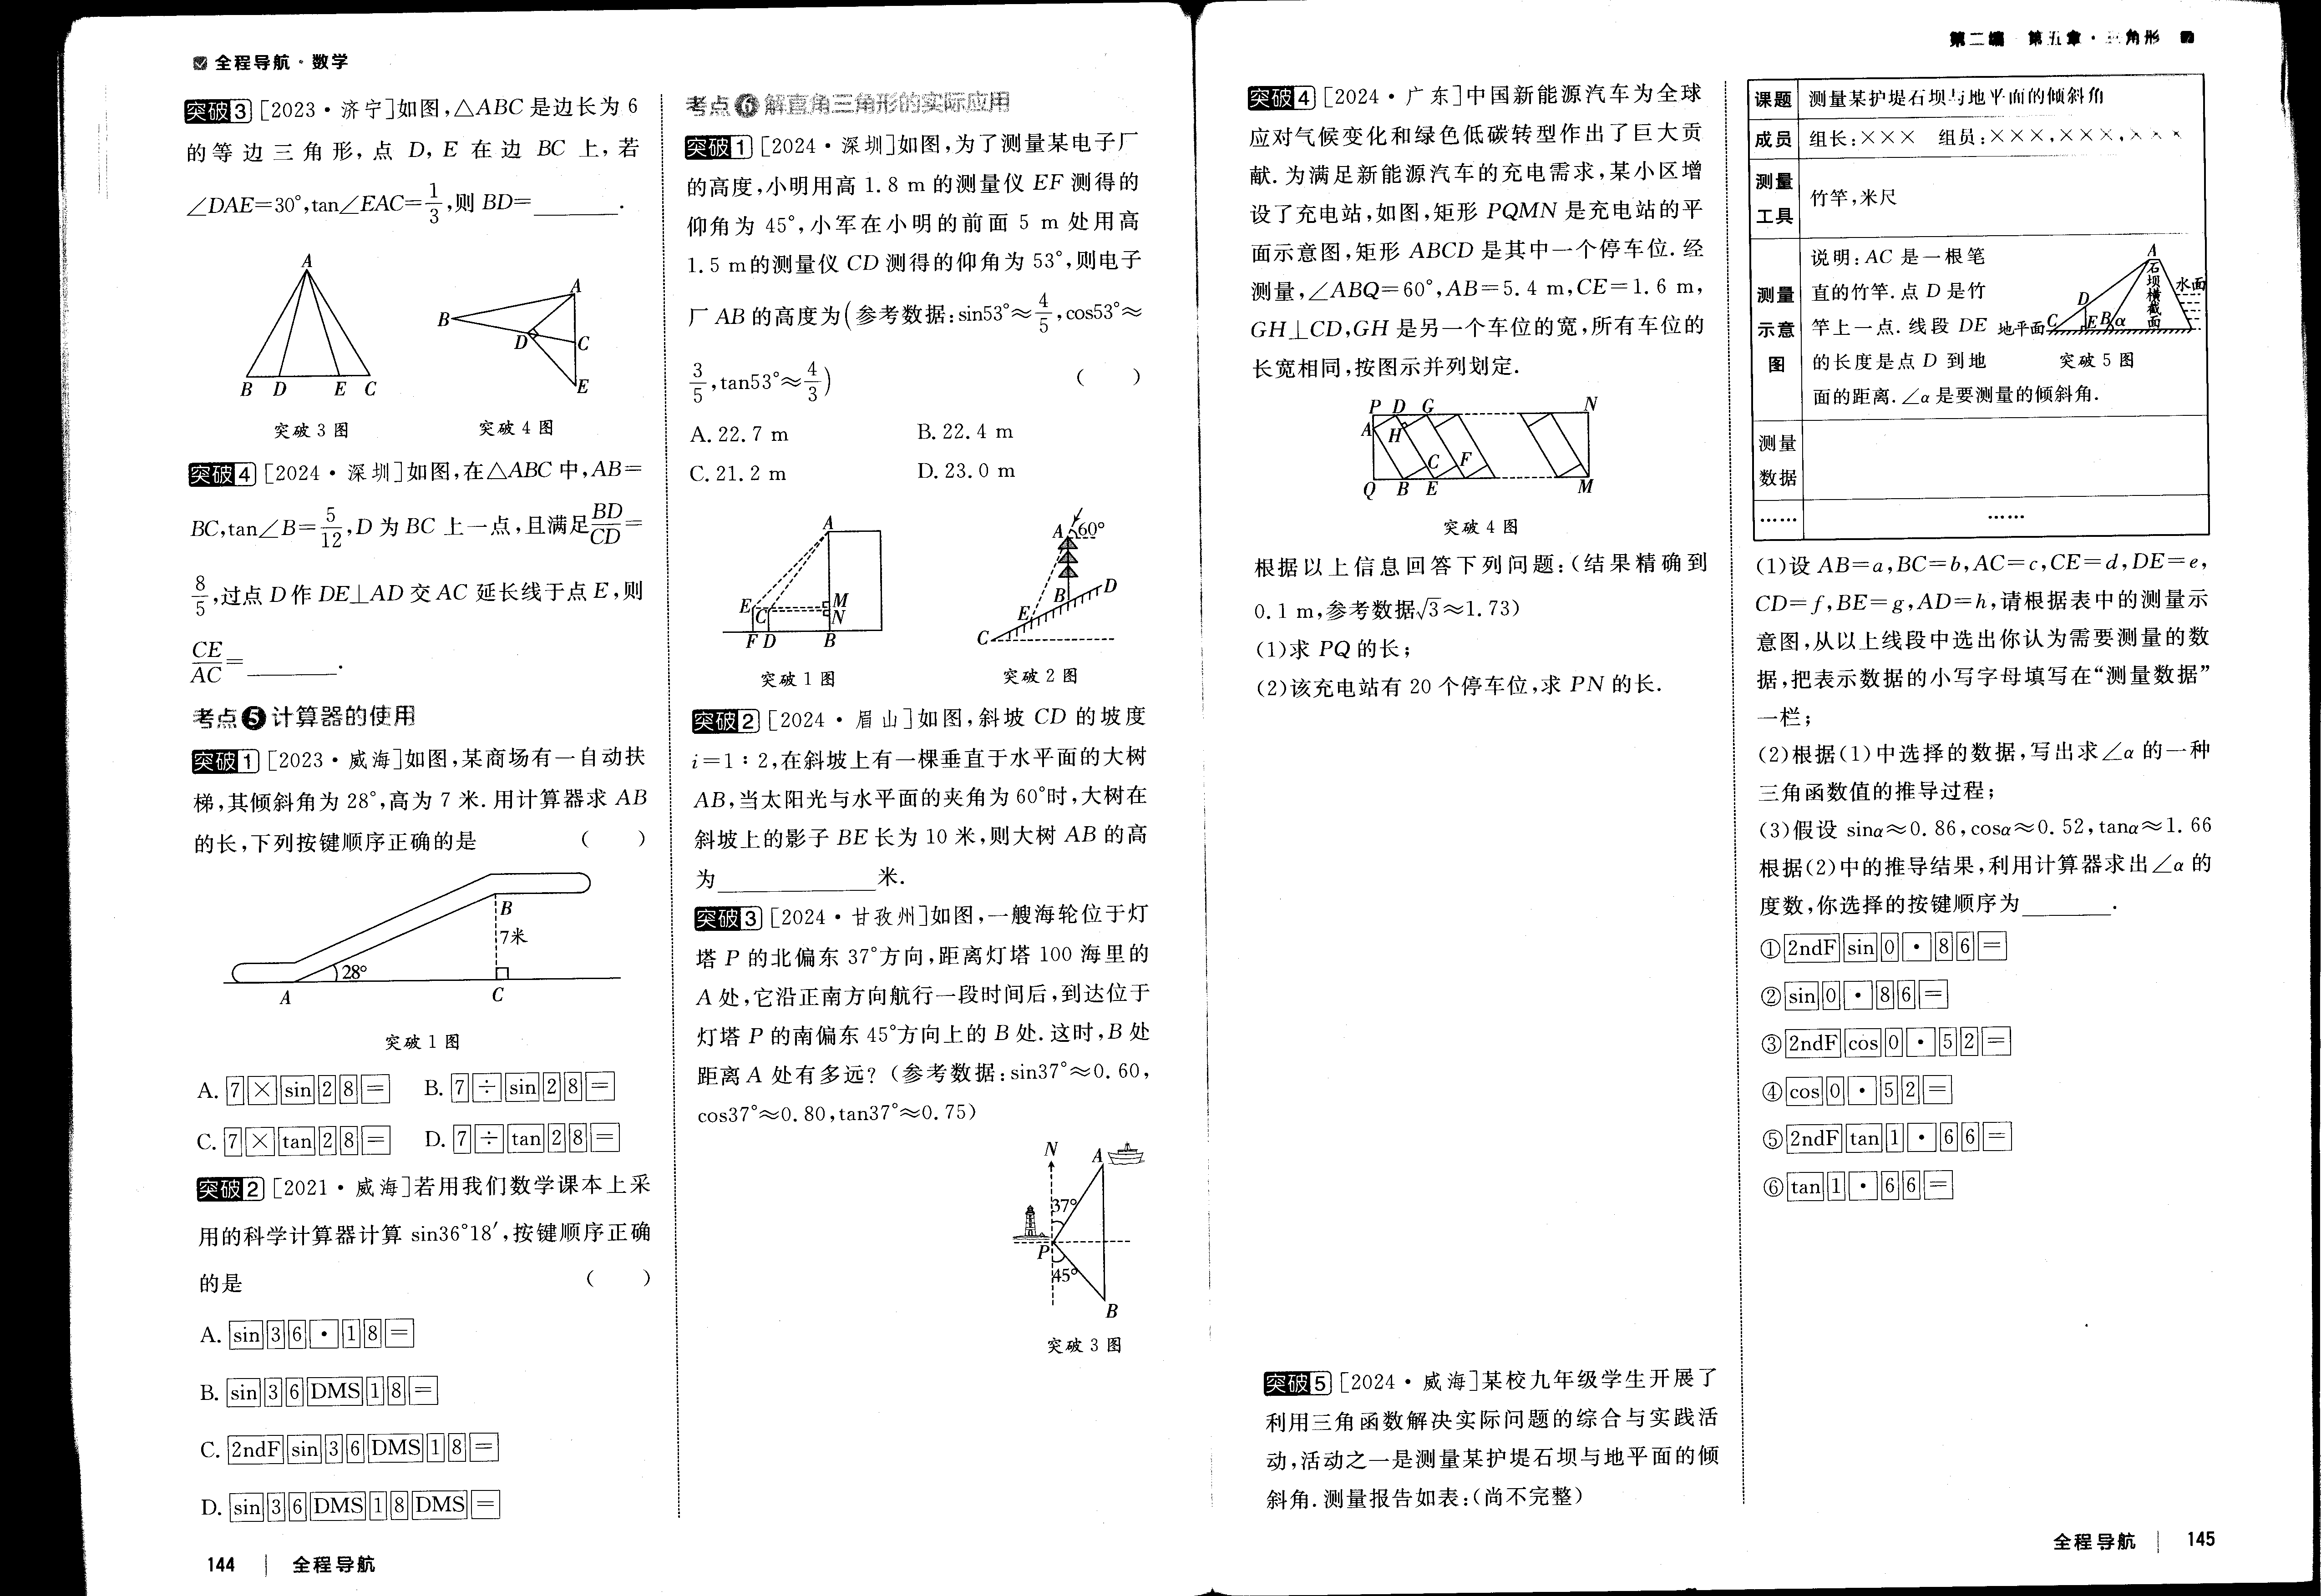 全程导航·数学
突破3 [2023·济宁]如图,△ABC 是边长为 6
的等边三角形,点 D,E 在边 BC 上,若
∠DAE=30°,tan∠EAC=1/3,则 BD=________.
A
B D E C
突破 3 图
A
B
D
C
E
突破 4 图
突破4 [2024·深圳]如图,在△ABC 中,AB=
BC,tan∠B=5/12,D 为 BC 上一点,且满足BD/CD=
8/5,过点 D 作 DE⊥AD 交 AC 延长线于点 E,则
CE/AC=________.
考点5 计算器的使用
突破1 [2023·威海]如图,某商场有一自动扶
梯,其倾斜角为 28°,高为 7 米.用计算器求 AB
的长,下列按键顺序正确的是 ( )
B
7米
28°
A C
突破 1 图
A. 7 × sin 2 8 = B. 7 ÷ sin 2 8 =
C. 7 × tan 2 8 = D. 7 ÷ tan 2 8 =
突破2 [2021·威海]若用我们数学课本上采
用的科学计算器计算 sin36°18′,按键顺序正确
的是 ( )
A. sin 3 6 · 1 8 =
B. sin 3 6 DMS 1 8 =
C. 2ndF sin 3 6 DMS 1 8 =
D. sin 3 6 DMS 1 8 DMS =
144 | 全程导航
考点6 解直角三角形的实际应用
突破1 [2024·深圳]如图,为了测量某电子厂
的高度,小明用高 1.8 m 的测量仪 EF 测得的
仰角为 45°,小军在小明的前面 5 m 处用高
1.5 m的测量仪 CD 测得的仰角为 53°,则电子
厂 AB 的高度为(参考数据:sin53°≈4/5,cos53°≈
3/5,tan53°≈4/3) ( )
A. 22.7 m B. 22.4 m
C. 21.2 m D. 23.0 m
A
E
C
M
N
F D B
突破 1 图
A 60°
D
B
E
C
突破 2 图
突破2 [2024·眉山]如图,斜坡 CD 的坡度
i=1∶2,在斜坡上有一棵垂直于水平面的大树
AB,当太阳光与水平面的夹角为 60°时,大树在
斜坡上的影子 BE 长为 10 米,则大树 AB 的高
为____________米.
突破3 [2024·甘孜州]如图,一艘海轮位于灯
塔 P 的北偏东 37°方向,距离灯塔 100 海里的
A 处,它沿正南方向航行一段时间后,到达位于
灯塔 P 的南偏东 45°方向上的 B 处.这时,B 处
距离 A 处有多远?(参考数据:sin37°≈0.60,
cos37°≈0.80,tan37°≈0.75)
N
A
37°
P
45°
B
突破 3 图
第二编 第五章·三角形
突破4 [2024·广东]中国新能源汽车为全球
应对气候变化和绿色低碳转型作出了巨大贡
献.为满足新能源汽车的充电需求,某小区增
设了充电站,如图,矩形 PQMN 是充电站的平
面示意图,矩形 ABCD 是其中一个停车位.经
测量,∠ABQ=60°,AB=5.4 m,CE=1.6 m,
GH⊥CD,GH 是另一个车位的宽,所有车位的
长宽相同,按图示并列划定.
P D G N
A H
C F
Q B E M
突破 4 图
根据以上信息回答下列问题:(结果精确到
0.1 m,参考数据√3≈1.73)
(1)求 PQ 的长;
(2)该充电站有 20 个停车位,求 PN 的长.
突破5 [2024·威海]某校九年级学生开展了
利用三角函数解决实际问题的综合与实践活
动,活动之一是测量某护堤石坝与地平面的倾
斜角.测量报告如表:(尚不完整)
课题 测量某护堤石坝与地平面的倾斜角
成员 组长:××× 组员:×××,×××,×××
测量
工具
竹竿,米尺
测量
示意
图
说明:AC 是一根笔
直的竹竿.点 D 是竹
竿上一点.线段 DE
的长度是点 D 到地
面的距离.∠α 是要测量的倾斜角.
A
石坝横截面
水面
D
地平面 C E B α
突破 5 图
测量
数据
…… ……
(1)设 AB=a,BC=b,AC=c,CE=d,DE=e,
CD=f,BE=g,AD=h,请根据表中的测量示
意图,从以上线段中选出你认为需要测量的数
据,把表示数据的小写字母填写在“测量数据”
一栏;
(2)根据(1)中选择的数据,写出求∠α 的一种
三角函数值的推导过程;
(3)假设 sinα≈0.86,cosα≈0.52,tanα≈1.66
根据(2)中的推导结果,利用计算器求出∠α 的
度数,你选择的按键顺序为________.
① 2ndF sin 0 · 8 6 =
② sin 0 · 8 6 =
③ 2ndF cos 0 · 5 2 =
④ cos 0 · 5 2 =
⑤ 2ndF tan 1 · 6 6 =
⑥ tan 1 · 6 6 =
全程导航 | 145